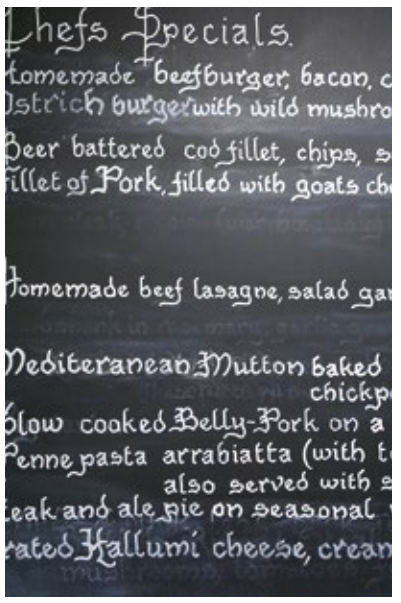 Chefs Specials.
Homemade beefburger, bacon, c
Ostrich burger with wild mushro
Beer battered cod fillet, chips, s
Fillet of Pork, filled with goats che
Homemade beef lasagne, salad gar
Mediteranean Mutton baked
chickpe
Slow cooked Belly-Pork on a
Penne pasta arrabiatta (with to
also served with s
teak and ale pie on seasonal
rated Hallumi cheese, cream